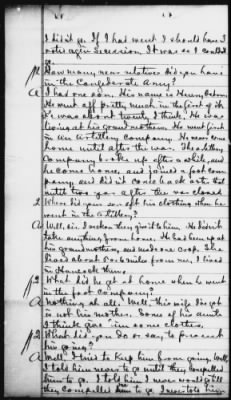 I did'nt go. If I had went I should have
voted agin Secession. It was so I couldnt
go.
How many near relatives did you have
in the Confederate Army?
A I had one son. His name is Henry
He went off pretty much in the first of it.
He was about twenty I think. He was
living at his grand mothers. He went first
in an Artillery Company. He never come
home until after the war. The Artillery
Company broke up after a while, and
he come home, and joined a foot com-
pany, and did'nt come back at that
until two years after the war closed
2 Where did your son get his clothing when he
went in the Artillery?
A Well, sir. I reckon they give it to him. He did'nt
take anything from home. He had been up at
his grandmothers, and made one crop. She
lived about 5 or 6 miles from me, I lived
in Hancock then.
2 What did he get at home when he went
in the foot company?
A Nothing at all. Well, this wife I've got
is not his mother. Some of his aunts
I think give 'im some clothes.
2 What did you do or say to prevent
his going?
A Well, I tried to keep him from going. Well,
I told him never to go until they compelled
him to go. I told him I never would go till
they compelled him to go. I never told him